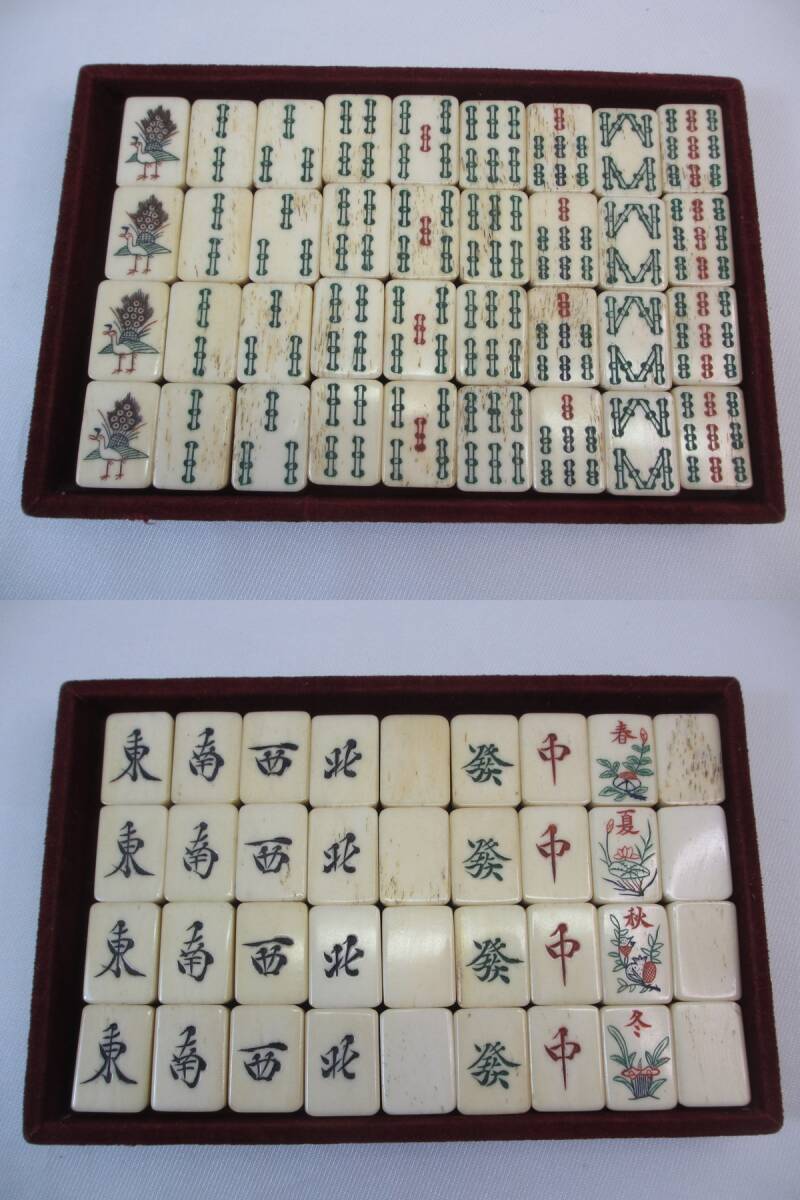 東 南 西 北 發 中 春
東 南 西 北 發 中 夏
東 南 西 北 發 中 秋
東 南 西 北 發 中 冬